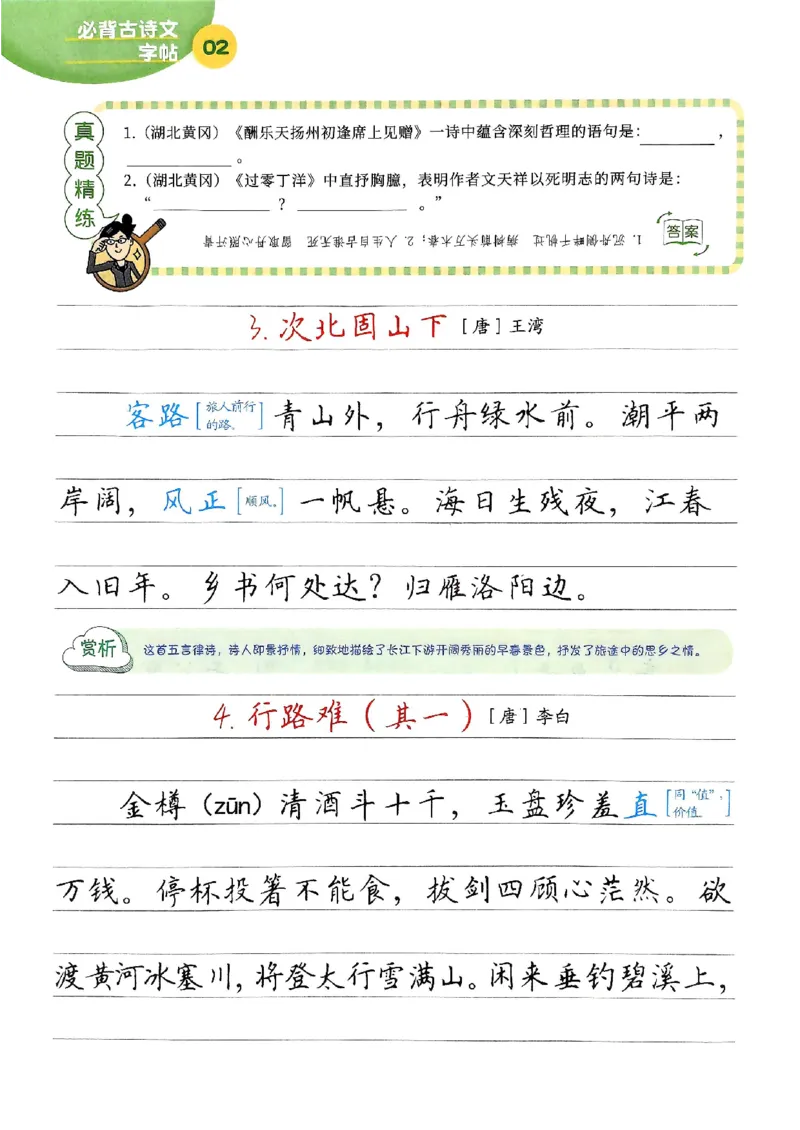 必背古诗文
字帖 02
真题精练
1.（湖北黄冈）《酬乐天扬州初逢席上见赠》一诗中蕴含深刻哲理的语句是：________，
________。
2.（湖北黄冈）《过零丁洋》中直抒胸臆，表明作者文天祥以死明志的两句诗是：
“________？________。”
答案
1. 沉舟侧畔千帆过 病树前头万木春；2. 人生自古谁无死 留取丹心照汗青
3.次北固山下［唐］王湾
客路［旅人前行的路。］青山外，行舟绿水前。潮平两
岸阔，风正［顺风。］一帆悬。海日生残夜，江春
入旧年。乡书何处达？归雁洛阳边。
赏析 这首五言律诗，诗人即景抒情，细致地描绘了长江下游开阔秀丽的早春景色，抒发了旅途中的思乡之情。
4.行路难（其一）［唐］李白
金樽（zūn）清酒斗十千，玉盘珍羞直［同“值”，价值］
万钱。停杯投箸不能食，拔剑四顾心茫然。欲
渡黄河冰塞川，将登太行雪满山。闲来垂钓碧溪上，